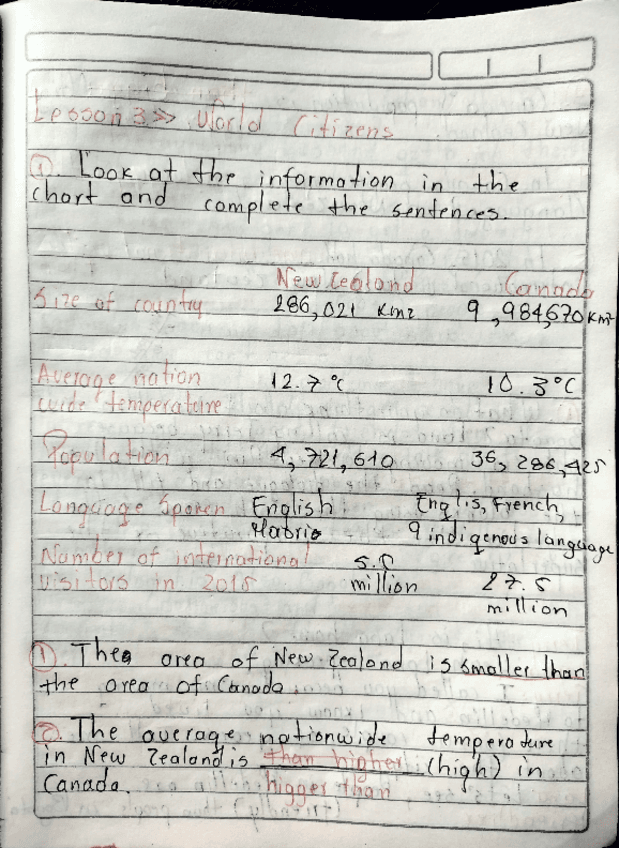 Lesson 3 >> World Citizens
1. Look at the information in the
chart and complete the sentences.
New Zealand Canada
Size of country 286,021 Km2 9,984,670 Km2
Average nation 12.7°C 10.3°C
wide temperature
Population 4,721,610 36,286,425
Language Spoken English Englis, French,
Maorie 9 indigenous language
Number of international 5.5
visitors in 2015 million 27.5
million
1. The area of New Zealand is smaller than
the area of Canada
2. The average nationwide temperature
in New Zealand is than higher (high) in
Canada. higger than